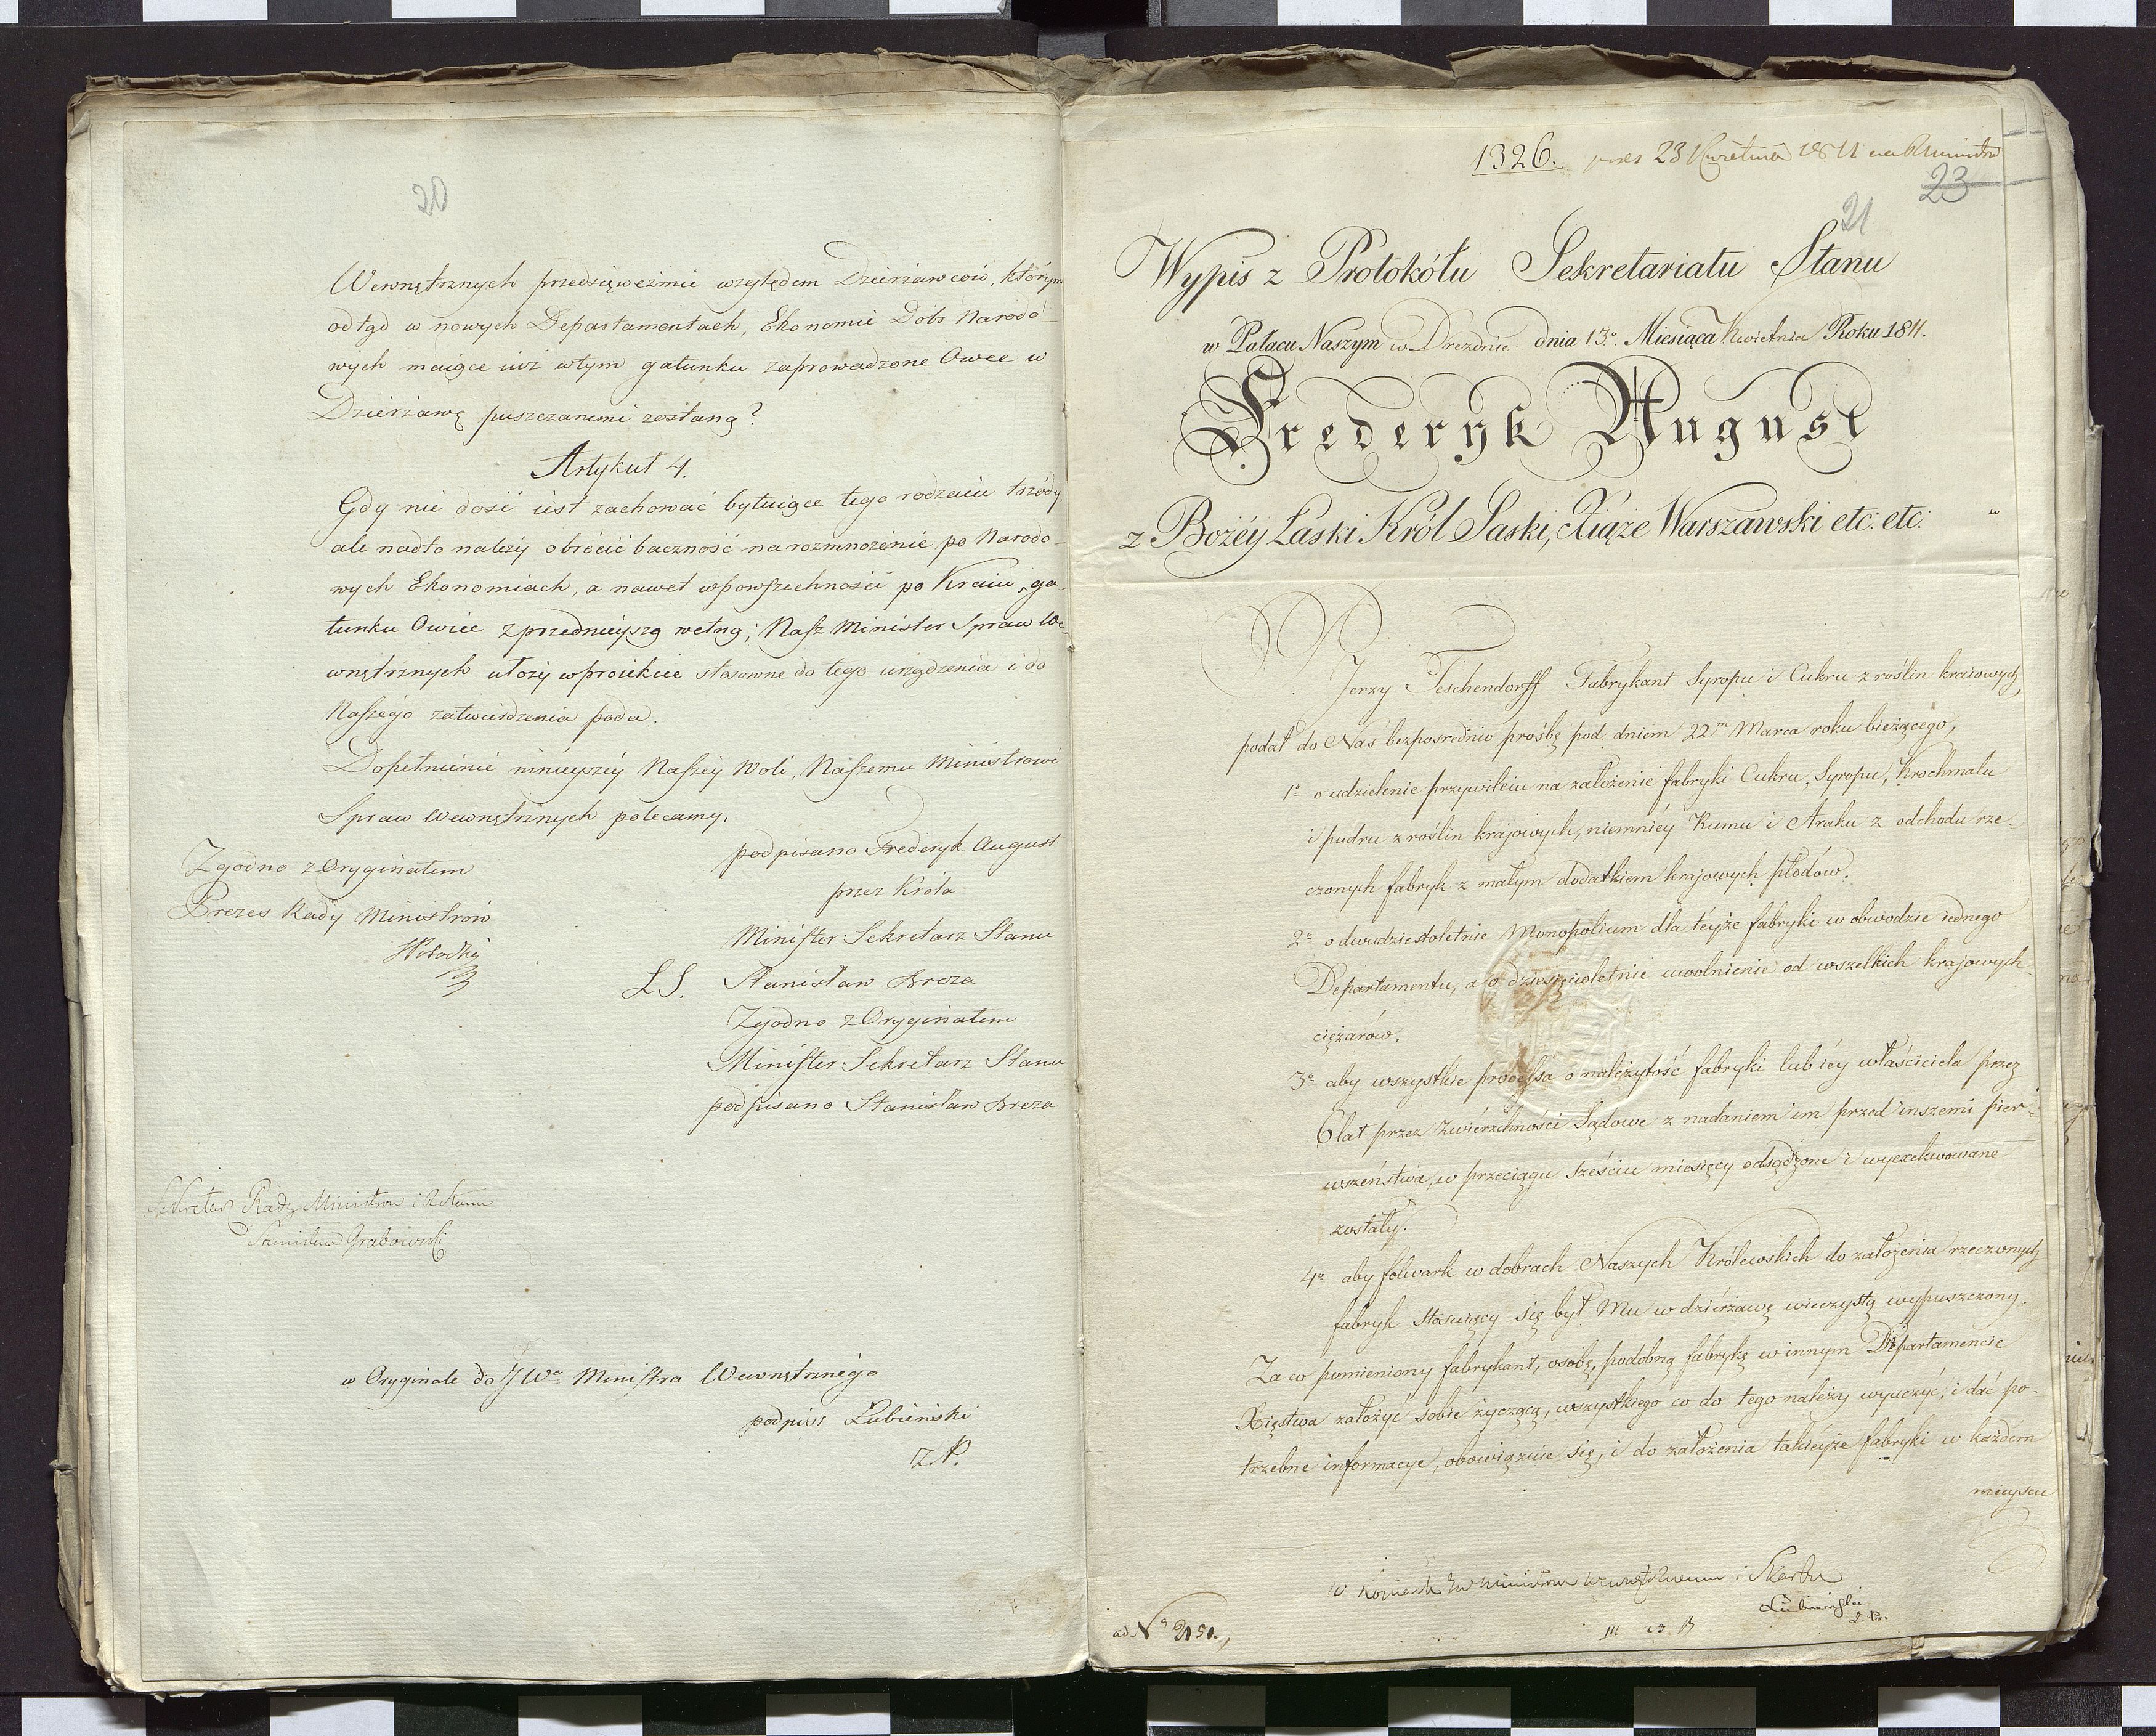 20
Wewnętrznych przedsięweźmie względem Dzierżawców, którym
odtąd w nowych Departamentach, Ekonomie Dóbr Narodo-
wych maiące iuż w tym gatunku zaprowadzone Owce w
Dzierżawę puszczanemi zostaną?
Artykuł 4.
Gdy nie dość iest zachować bytuiące tego rodzaiu trzody,
ale nadto należy obrócić baczność na rozmnożenie po Narodo-
wych Ekonomiach, a nawet w powszechności po Kraiu, ga-
tunku Owiec z przednieyszą wełną; Nasz Minister Spraw We-
wnętrznych ułoży w proiekcie stosowne do tego urządzenia i do
Naszego zatwierdzenia poda.
Dopełnienie ninieyszey Naszey Woli, Naszemu Ministrowi
Spraw Wewnętrznych polecamy.
podpisano Frederyk August
przez Króla
Minister Sekretarz Stanu
L.S. Stanisław Breza
Zgodno z Oryginałem
Minister Sekretarz Stanu
podpisano Stanisław Breza
Zgodno z Oryginałem
Prezes Rady Ministrów
Sekretarz Rady Ministrów i R. Stanu
Stanisław Grabowski
w Oryginale do JWo Ministra Wewnętrznego
podpis: Łubieński
Z.P.
1326. 23 Kwietnia 1811
23
21
Wypis z Protokółu Sekretariatu Stanu
w Pałacu Naszym w Dreznie. dnia 13o. Miesiąca Kwietnia Roku 1811.
Frederyk August
z Bożéy Łaski Król Saski, Xiąże Warszawski etc: etc:
Jerzy Teschendorff Fabrykant Syropu i Cukru z roślin kraiowych,
podał do Nas bezpośrednio prośbę pod dniem 22m Marca roku bieżącego,
1o o udzielenie przywileiu na założenie fabryki Cukru, Syropu, Krochmalu
i pudru z roślin krajowych, niemniéy Rumu i Araku z odchodu rze-
czonych fabryk z małym dodatkiem krajowych płodów.
2o o dwudziestoletnie Monopolium dla teyże fabryki w obwodzie iednego
Departamentu, a o dziesięcioletnie uwolnienie od wszelkich krajowych
ciężarów.
3o aby wszystkie processa o należytość fabryki lub iéy właściciela przez
6 lat przez Zwierzchności Sądowe z nadaniem im przed inszemi pier-
wszeństwa, w przeciągu sześciu miesięcy odsądzone i wyexekwowane
zostały.
4o aby folwark w dobrach Naszych Królewskich do założenia rzeczonych
fabryk stosuiący się był Mu w dzierżawę wieczystą wypuszczony.
Za co pomieniony fabrykant, osobę, podobną fabrykę w innym Departamencie
Xięstwa założyć sobie życzącą, wszystkiego co do tego należy wyuczyć, i dać po-
trzebne informacye, obowiązuie się, i do założenia takieyże fabryki w każdem
mieyscu
Ministra Wewnętrznemu i Skarbu
Łubieński
Z. P.
ad No 2151.